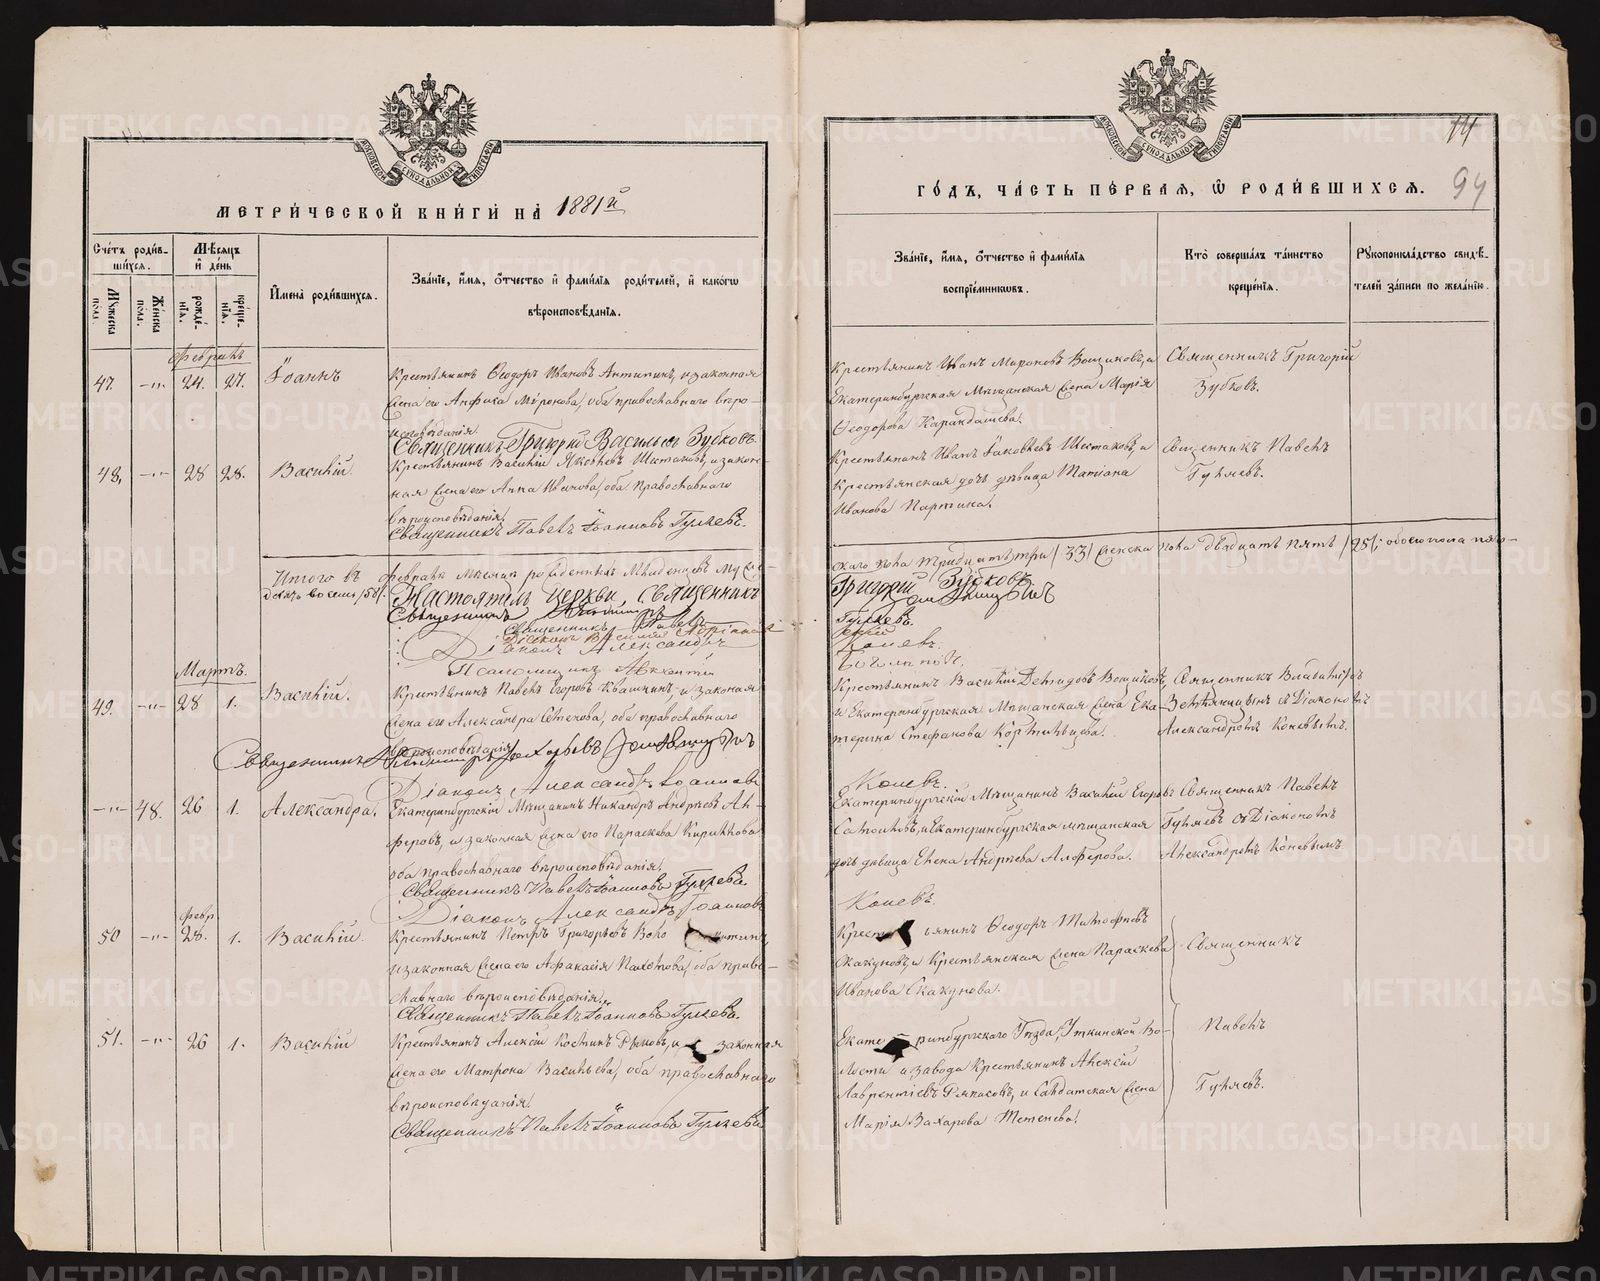 МЕТРИ́ЧЕСКОЙ КНИ́ГИ НА̀ 1881й
Сче́тъ роди́в-
ши́хся.
Му́жеска
пола.
Же́нска
по́ла.
М-ѣсяцъ
и де́нь
рожде́-
нїя.
креще́-
нїя.
Имена̀ роди́вшихся.
Зва́нїе, и́мя, о́тчество и фами́лїя роди́телей, и како́гѡ
вѣроисповѣ́данїя.
Февраль
47. —"— 24. 27. Іоаннъ
Крестьянинъ Ѳеодоръ Ивановъ Антипинъ, и законная
жена его Анфиса Миронова, оба православнаго вѣро-
исповѣданія.
Священникъ Григорій Васильевъ Зубковъ
48. —"— 28 28. Василій
Крестьянинъ Василій Яковлевъ Шестаковъ, и закон-
ная жена его Анна Иванова, оба православнаго
вѣроисповѣданія.
Священникъ Павелъ Іоанновъ Гуляевъ.
Итого въ февралѣ мѣсяцѣ рожденныхъ младенцевъ муже-
десять восемь /58/.
Настоятель церкви, Священникъ
Священникъ Владиміръ
Священникъ Павелъ
Діаконъ Василій
Діаконъ Александръ
Псаломщикъ
Мартъ.
49. —"— 28 1. Василій.
Крестьянинъ Павелъ Егоровъ Квашнинъ, и законная
жена его Александра, оба православнаго
вѣроисповѣданія
Священникъ Владиміръ
Діаконъ Александръ Іоанновъ
—"— 48. 26 1. Александра.
Екатеринбургскій Мѣщанинъ Никандръ Андреевъ Ал-
феровъ, и законная жена его Параскева Кириллова
оба православнаго вѣроисповѣданія.
Священникъ Павелъ Іоанновъ Гуляевъ.
Діаконъ Александръ Іоанновъ
февр.
50 —"— 28. 1. Василій.
Крестьянинъ Петръ Григорьевъ
и законная жена его Афанасія Павлова, оба право-
славнаго вѣроисповѣданія.
Священникъ Павелъ Іоанновъ Гуляевъ.
51. —"— 26 1. Василій
Крестьянинъ Алексій Костинъ, и законная
жена его Матрона Васильева, оба православнаго
вѣроисповѣданія.
Священникъ Павелъ Іоанновъ Гуляевъ
14
94
ГО́ДЪ, ЧА́СТЬ ПЕ́РВАЯ, Ѡ РОДИ́ВШИХСЯ.
Зва́нїе, и́мя, о́тчество и фами́лїя
воспрїе́мникѡвъ.
Кто̀ соверша́лъ та́инство
креще́нїя.
Рукоприкла́дство свидѣ́-
телей за́писи по жела́нїю.
Крестьянинъ Иванъ Мироновъ Вощиковъ, и
Екатеринбургская Мѣщанская жена Марія
Ѳеодорова Карандашева.
Священникъ Григорій
Зубковъ.
Крестьянинъ Иванъ Іаковлевъ Шестаковъ, и
Крестьянская дочь дѣвица Татіана
Иванова Партина.
Священникъ Павелъ
Гуляевъ.
скаго пола тридцать три /33/ женска пола двадцать пять /25/; обоего пола пять-
Григорій Зубковъ
Гуляевъ.
Коневъ.
Крестьянинъ Василій Демидовъ Вощиковъ,
и Екатеринбургская Мѣщанская жена Ека-
терина Стефанова
Священникъ Владиміръ
Земляницынъ съ Діакономъ
Александромъ Коневымъ.
Коневъ.
Екатеринбургскій Мѣщанинъ Василій Егоровъ
и Екатеринбургская мѣщанская
дочь дѣвица Елена Андреева Алферова.
Священникъ Павелъ
Гуляевъ съ Діакономъ
Александромъ Коневымъ
Коневъ.
Крестьянинъ Ѳеодоръ Тимофѣевъ
Скакуновъ, и Крестьянская жена Параскева
Иванова Скакунова.
Священникъ
Екатеринбургскаго Уѣзда, Уткинской Во-
лости и завода Крестьянинъ Алексій
Лаврентіевъ, и Солдатская жена
Марія Захарова Тетенева.
Павелъ
Гуляевъ.